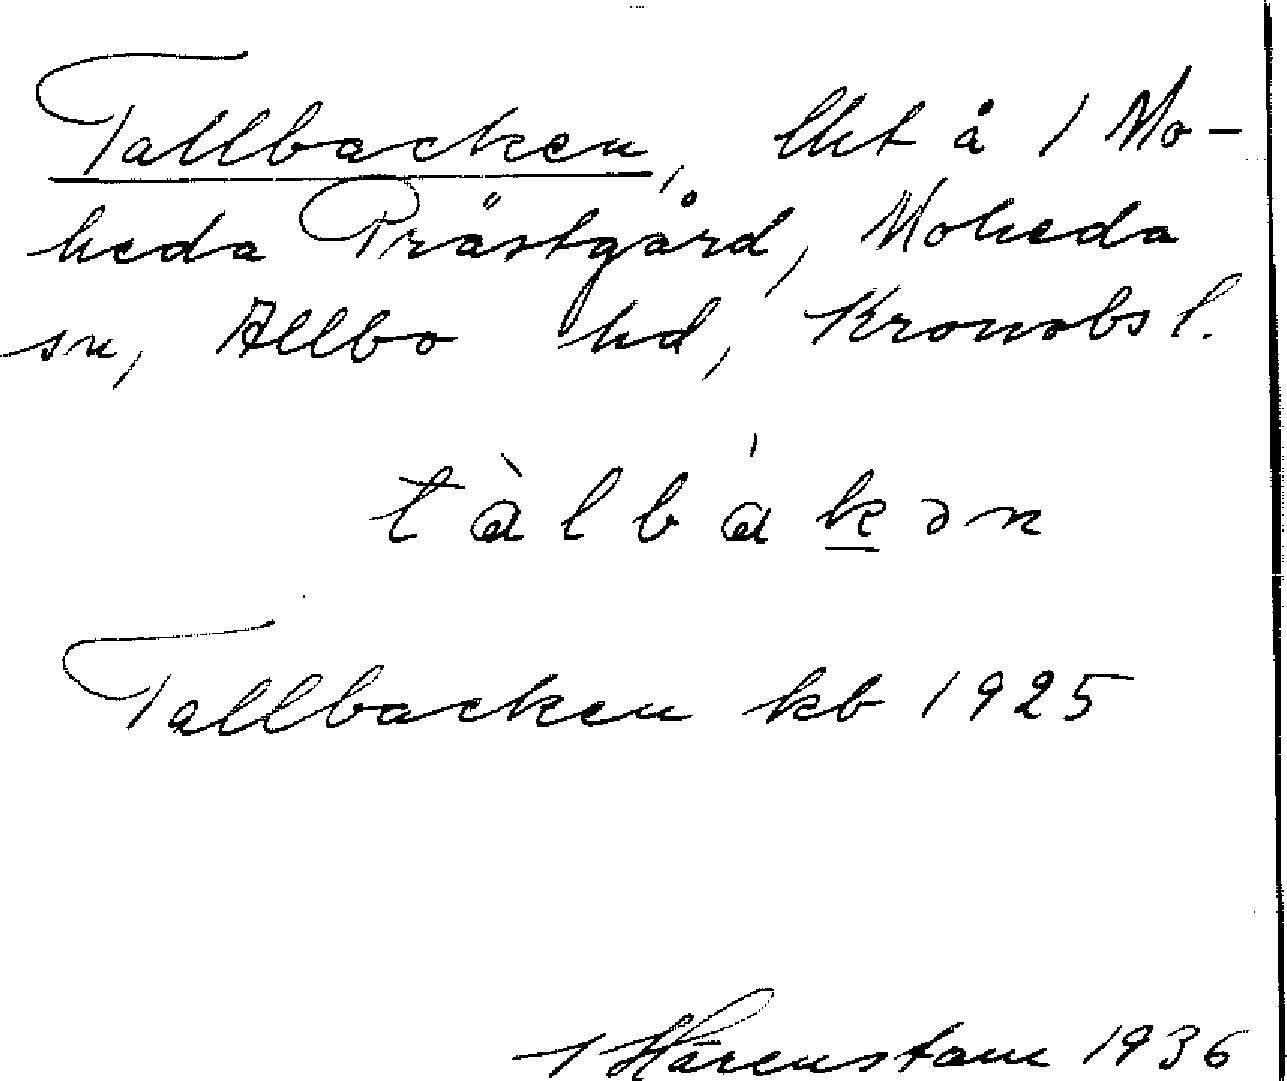 Tallbacken, lht å 1 Mo-
heda Prästgård, Moheda
sn, Allbo hd, Kronobs l.
tàlbákən
Tallbacken kb 1925
Härenstam 1936